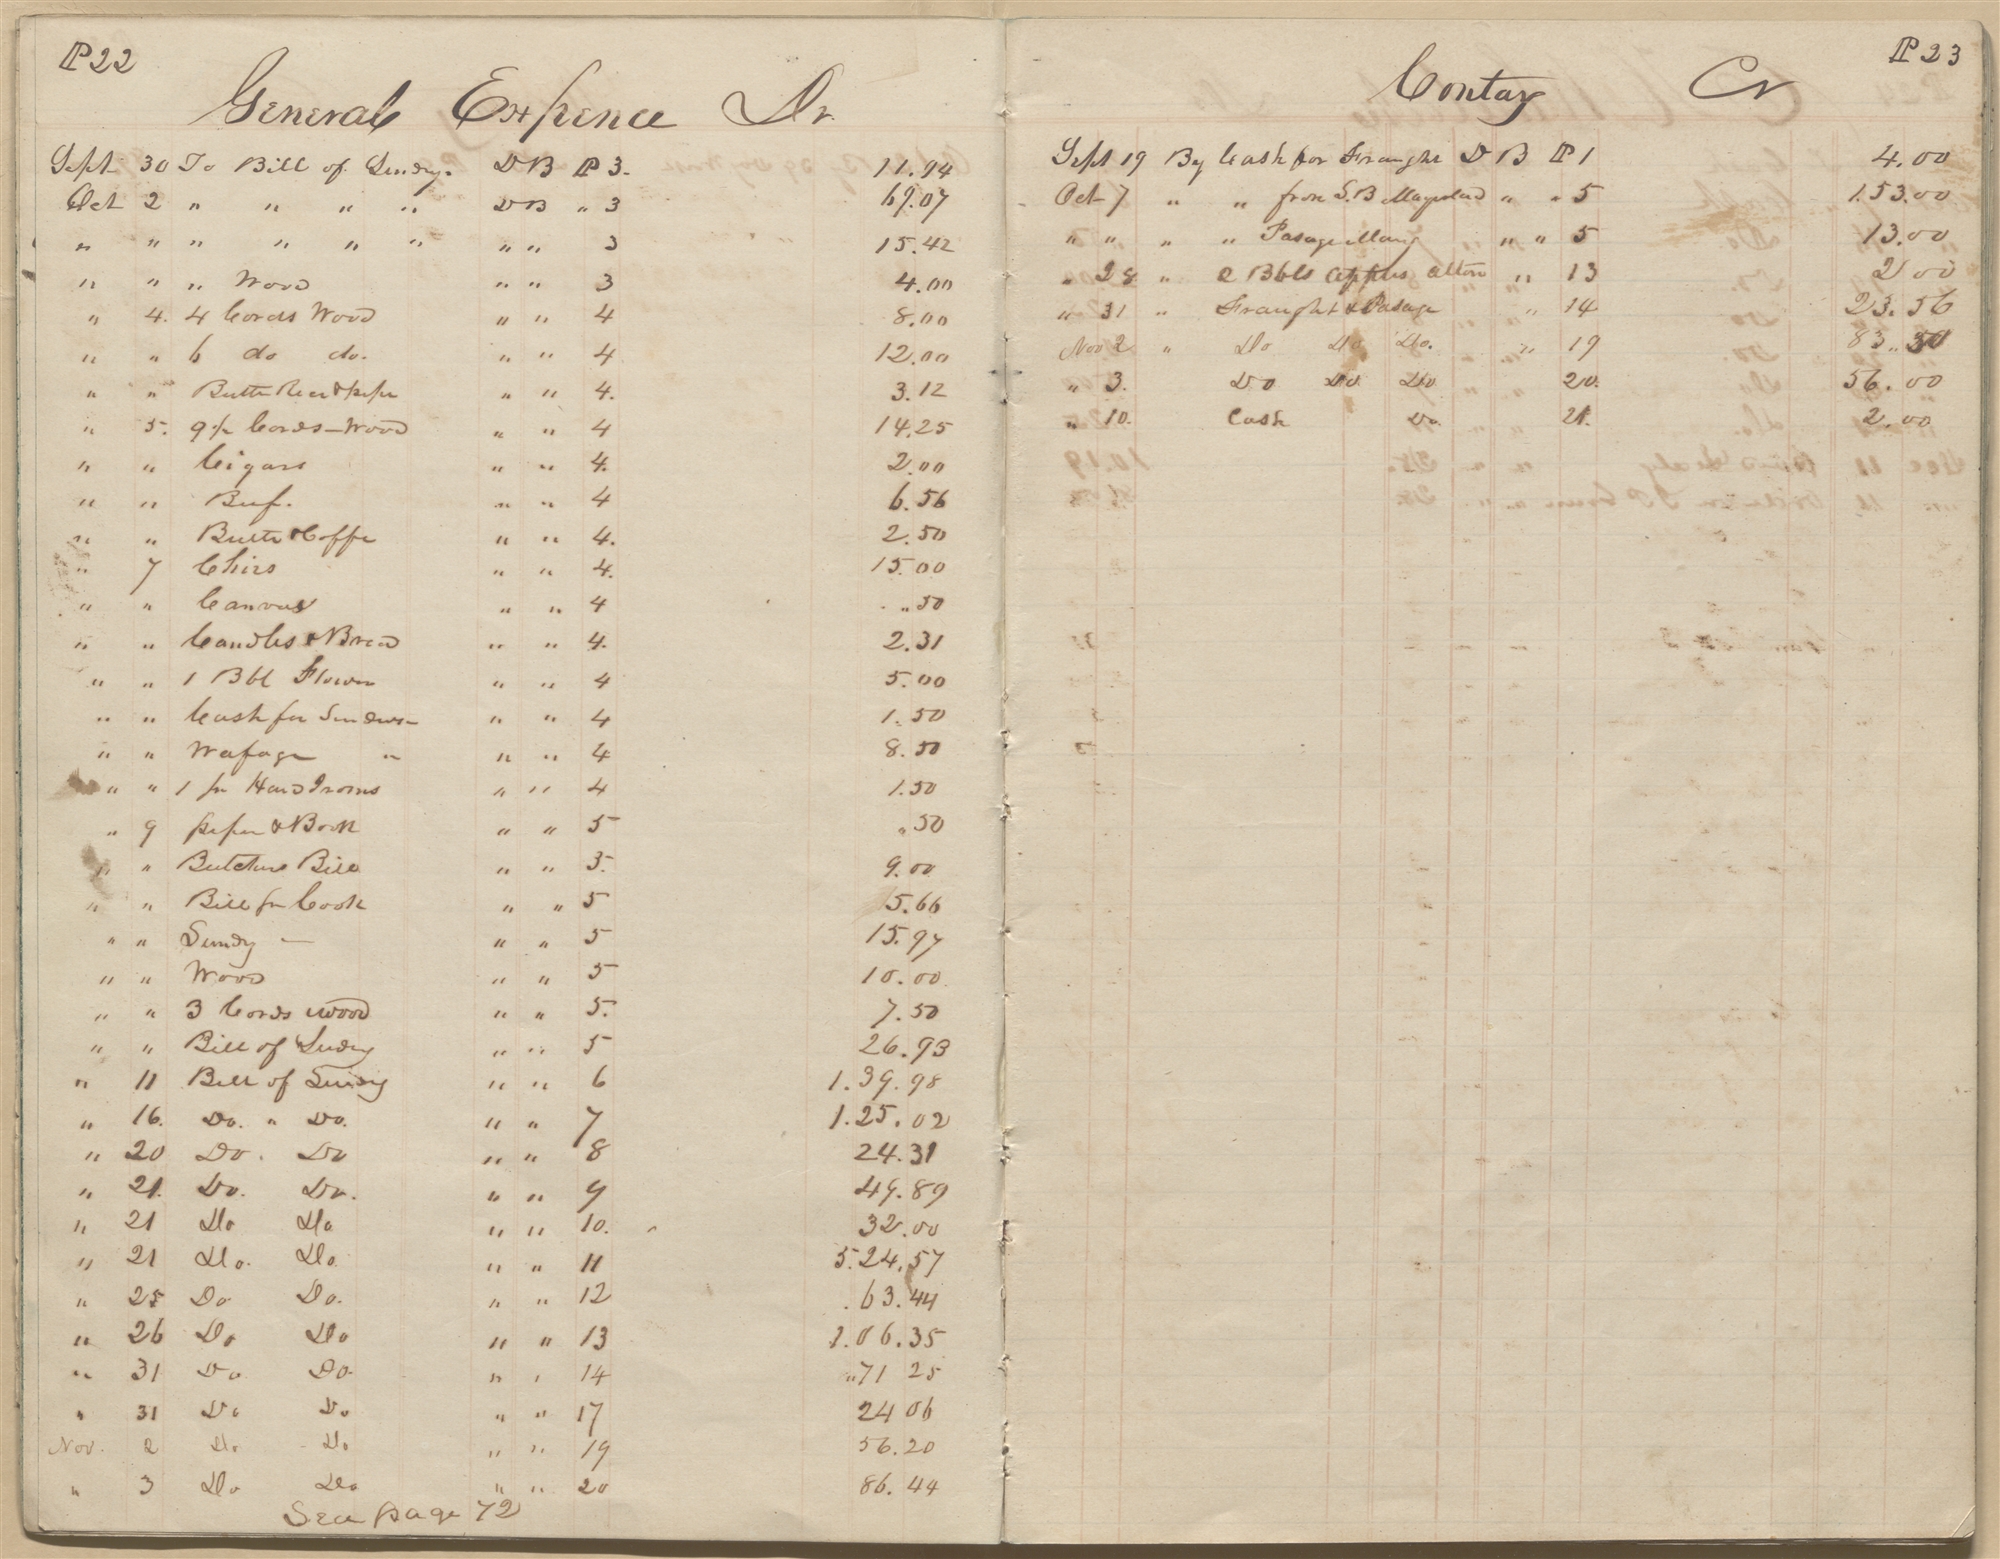 P 22
General Expence Dr.
Sept 30 To Bill of Sundry. DB P 3. 11.94
Oct 2 " " " " DB " 3 69.07
" " " " " " " " 3 15.42
" " " Wood " " 3 4.00
" 4. 4 Cords Wood " " 4 8.00
" " 6 do do. " " 4 12.00
" " " " 4. 3.12
" 5. Cords Wood " " 4 14.25
" " Cigars " " 4. 2.00
" " Beef. " " 4 6.56
" " Butter & Coffe " " 4. 2.50
" 7 " " 4. 15.00
" " Canvas " " 4 " 50
" " Candles & Bread " " 4. 2.31
" " 1 Bbl Flower " " 4 5.00
" " Cash for " " 4 1.50
" " " " 4 8.50
" " 1 pr Hand Irons " " 4 1.50
" 9 paper & Book " " 5 " 50
" " Butchers Bill " " 5. 9.00
" " Bill for Cook " " 5 5.66
" " Sundy — " " 5 15.97
" " Wood " " 5 10.00
" " 3 Cords wood " " 5. 7.50
" " Bill of Sudry " " 5 26.93
" 11 Bill of Sundy " " 6 1.39.98
" 16. Do. " Do. " " 7 1.25.02
" 20 Do. Do " " 8 24.31
" 21. Do. Do. " " 9 49.89
" 21 Do Do " " 10. 32.00
" 21 Do. Do. " " 11 5.24.57
" 25 Do Do. " " 12 .63.44
" 26 Do Do " " 13 1.06.35
" 31 Do. Do. " " 14 "71 25
" 31 Do Do " " 17 24 06
Nov. 2 Do Do " " 19 56.20
" 3 Do Do " " 20 86.44
See page 72
P 23
Contay Cr
Sept 19 By Cash for Fraught D B P 1 4.00
Oct 7 " " from S.B " " 5 1.53.00
" " " " Pasage " " 5 13.00
" 28 " 2 Bbls Apples Alton " 13 2 00
" 31 " Fraught & Pasage " 14 23.56
Nov 2 " Do Do Do. " 19 83.50
" 3. Do Do. Do 20. 56.00
" 10. Cash Do. 21. 2.00